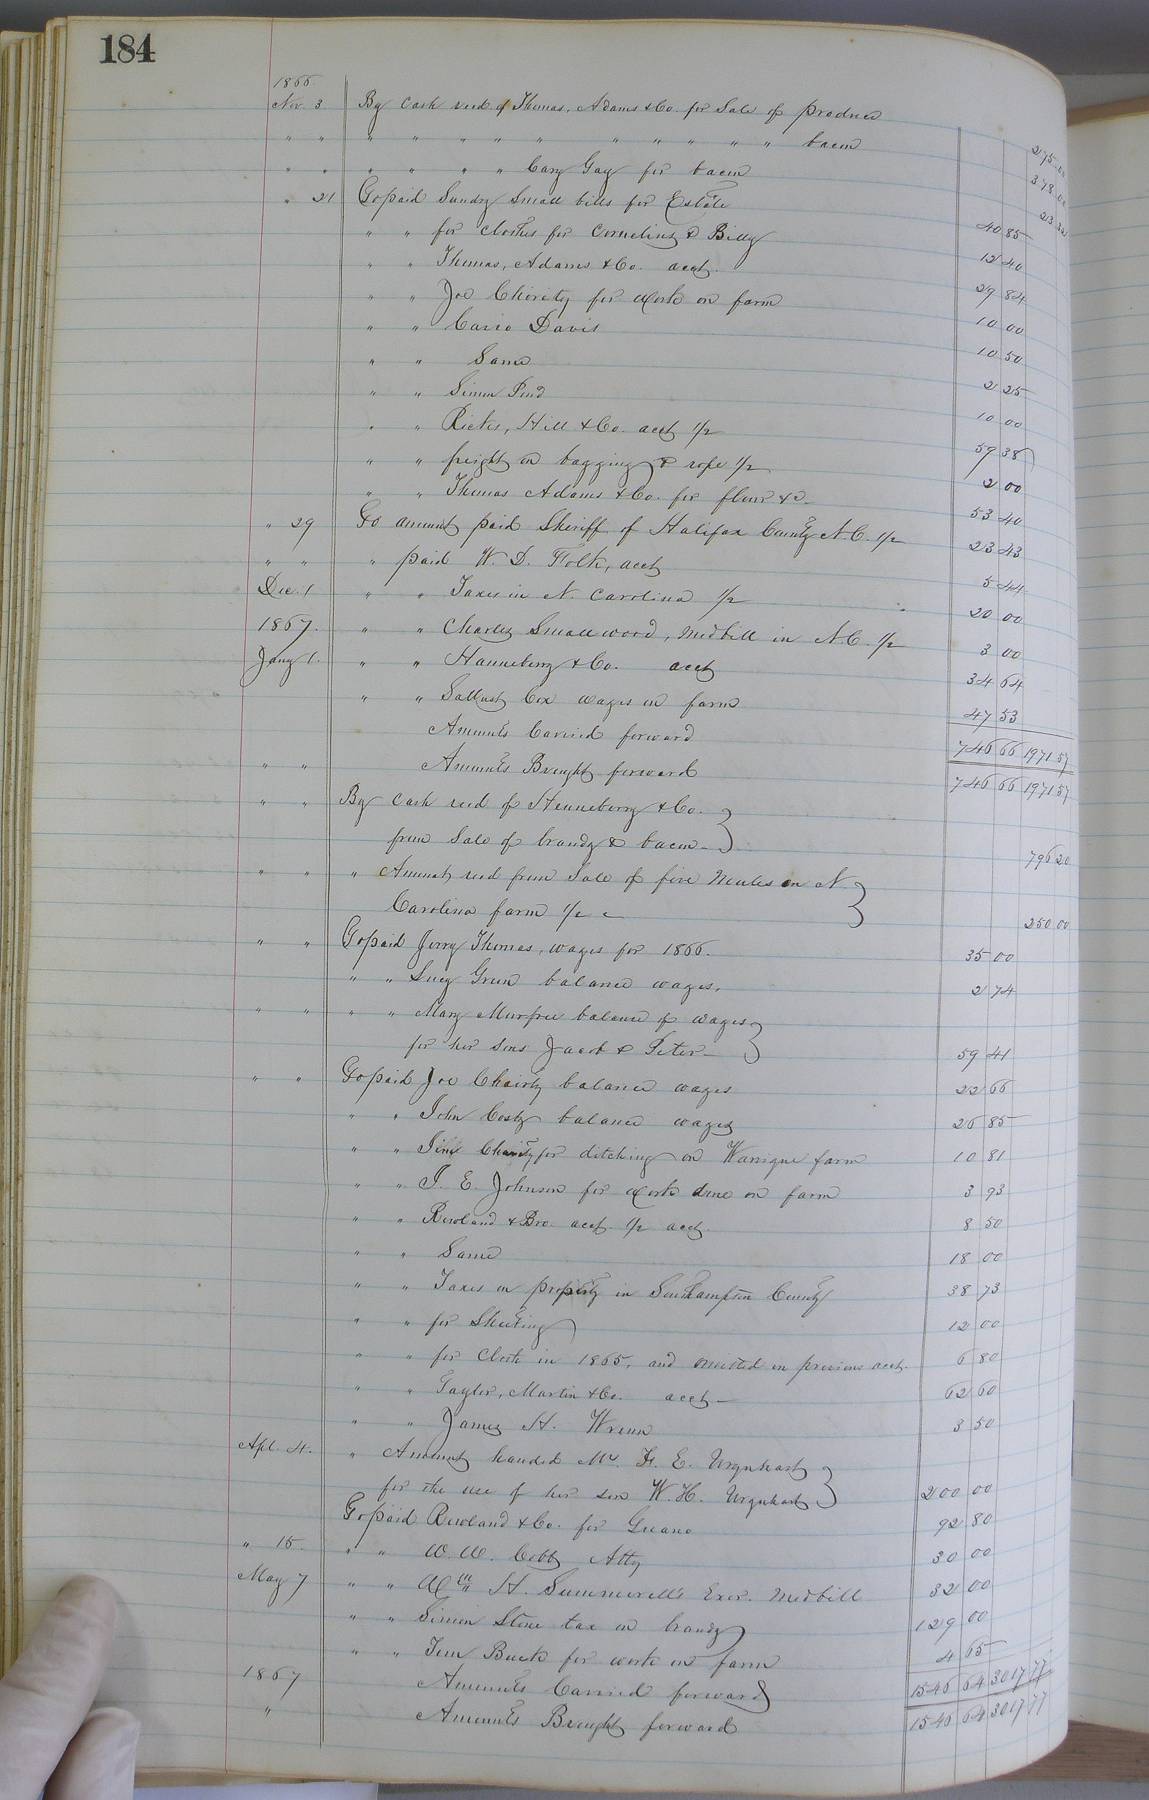 184
1866
Nov. 3 By cash recd of Thomas, Adams & Co. for Sale of produce 275.00
" " " " " " " " " " " " bacon 378.00
" " " " " " Cary Gay for bacon
" 21 To paid Sundry Small bills for Estate 40 85
" " for clothes for Cornelius & Billy 12 40
" " Thomas, Adams & Co. acct. 29 84
" " Joe Charity for work on farm 10 00
" " Davis 10 50
" " Same 2 25
" " Simon 10 00
" " Ricks, Hill & Co. acct 1/2 59 38
" " freight on bagging & rope 1/2 2 00
" " Thomas Adams & Co. for flour &c. 53 40
" 29 To amount paid Sheriff of Halifax County N.C. 1/2 23 43
" " " paid W. D. Folk, acct 5 44
Dec. 1 " " Taxes in N. Carolina 1/2 20 00
1867. " " Charles Smallwood, Med bill in N.C. 1/2 3 00
Jany 1. " " Henneberry & Co. acct 34 64
" " Sallust Cox wages on farm 47 53
Amounts Carried forward 746 66 1971.57
" " Amounts Brought forward 746 66 1971.57
" " By cash recd of Henneberry & Co.
from Sale of brandy & bacon 796 20
" " " Amount recd from Sale of five Mules on N.
Carolina farm 1/2 250 00
" " To paid Jerry Thomas, wages for 1866. 35 00
" " Lucy Green balance wages. 2 74
" " " " Mary Murfree balance of wages
for her sons Jacob & Peter 59 41
" " To paid Joe Charity balance wages 22 66
" " John Costy balance wages 26 85
" " Charity for ditching on Warrique farm 10 81
" " J. E. Johnson for work done on farm 3 93
" " Rowland & Bro. acct 1/2 acct 8 50
" " Same 18 00
" " Taxes on property in Southampton County 38 73
" " for Sheeting 12 00
" " for Cloth in 1865, and omitted in previous acct. 6 80
" " Taylor, Martin & Co. acct 62 60
" " James H. Wrenn 3 50
Apl. 4. " Amount handed Mrs. E. Urquhart
for the use of her son W. H. Urquhart 200 00
To paid Rowland & Co. for Guano 92 80
" 15. " " W. W. Cobb Atty 30 00
May 7 " " Wm H. Summerell's Exor. Med bill 32 00
" " Simon Stone tax on brandy 129 00
" " Jim Buck for work on farm 4 65
1867 Amounts Carried forward 1546 64 3017 77
" Amounts Brought forward 1546 64 3017 77